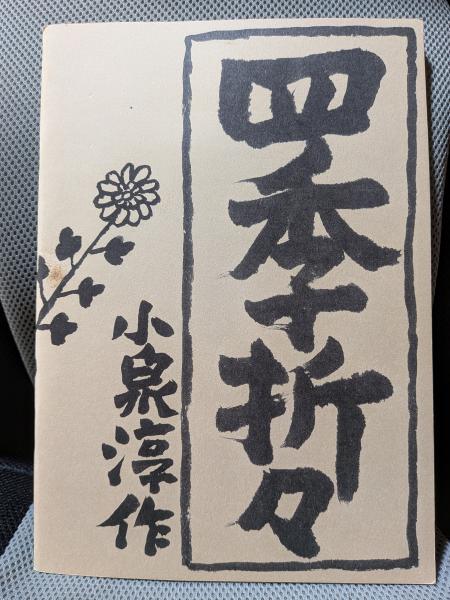 四季折々
小泉淳作